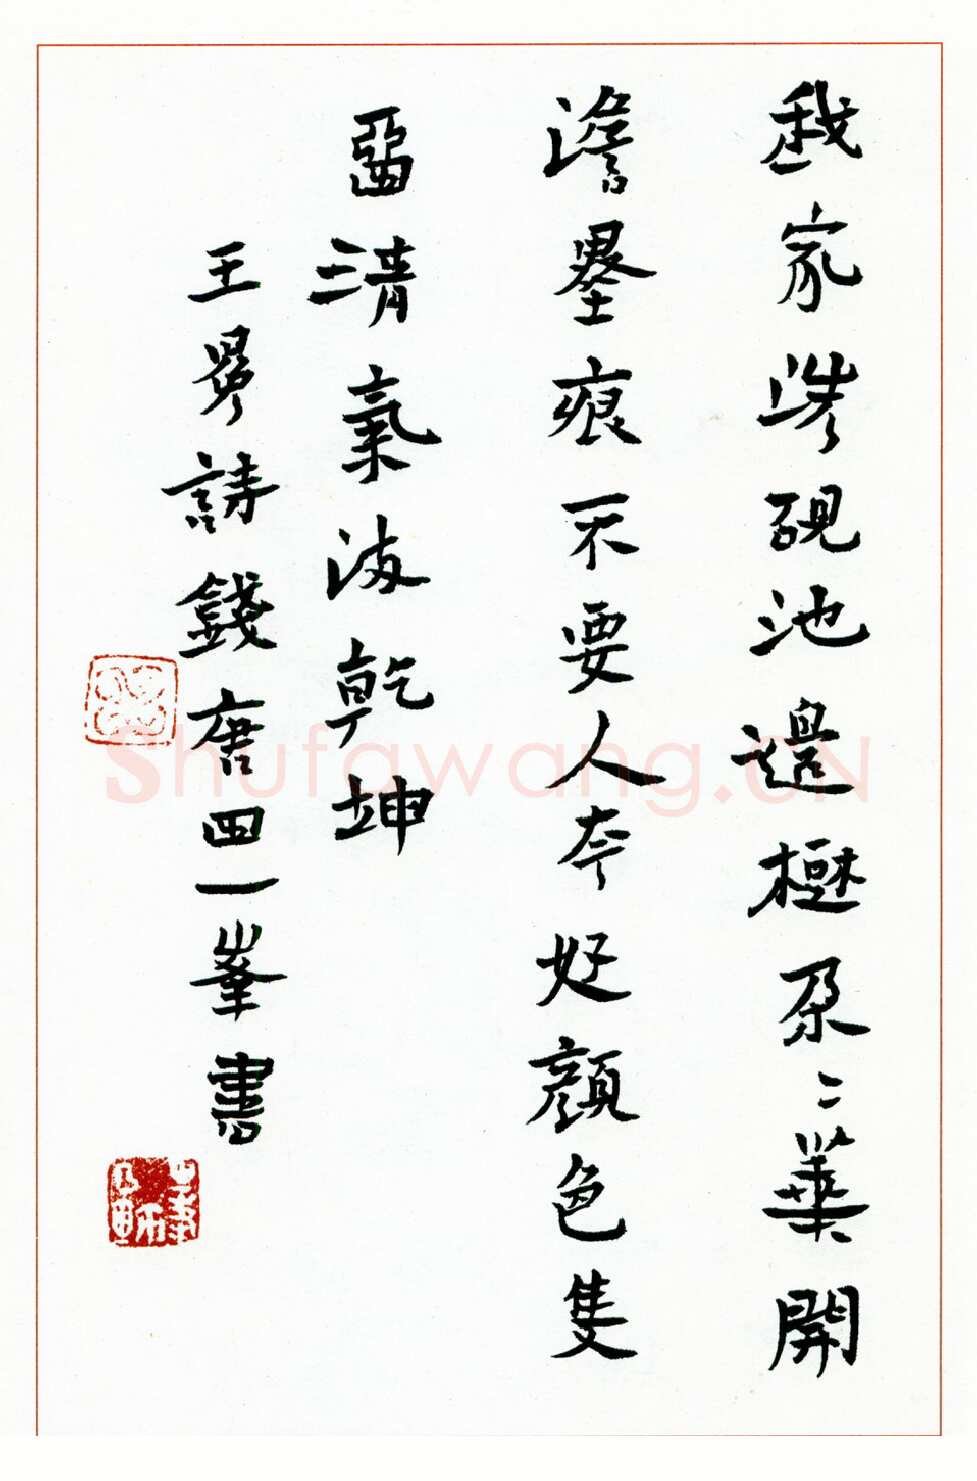 我家洗硯池邊樹朵〻華開
澹墨痕不要人夸好顏色隻
留清氣滿乾坤
王冕詩錢唐四一峯書
Shufawang.CN